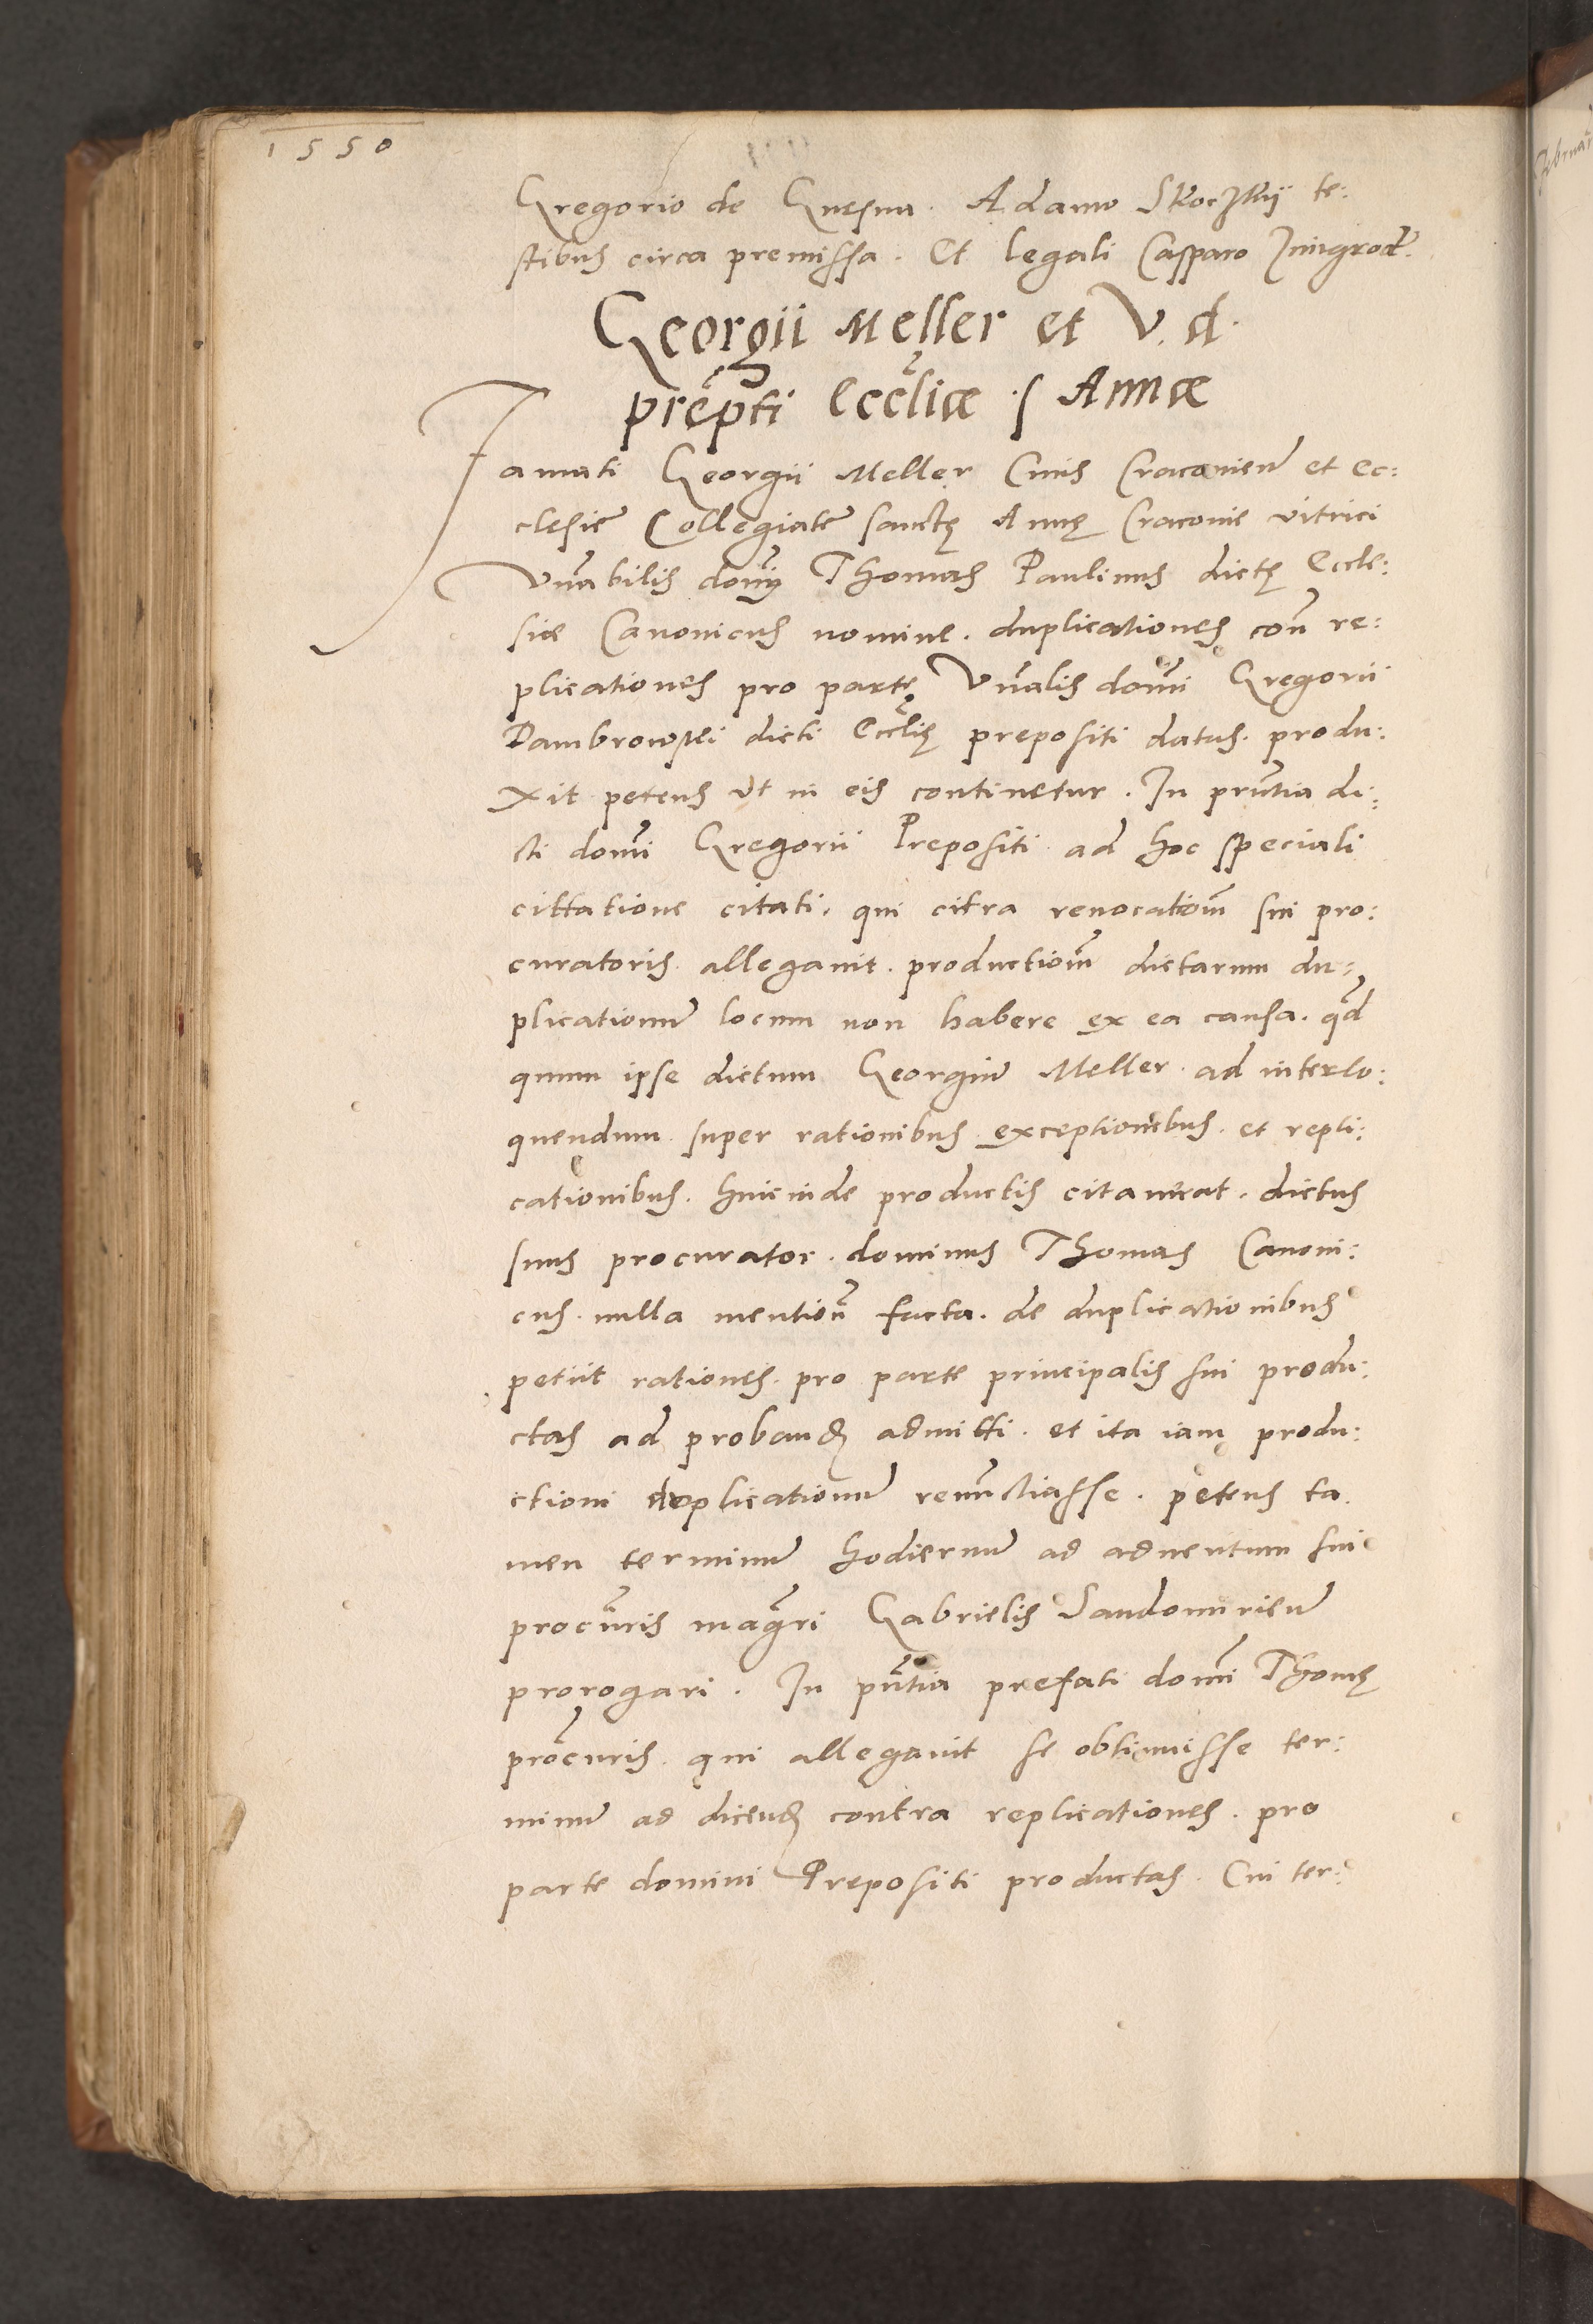 1550
Gregorio de Gnesna. Adamo Skoczkÿ te:
stibus circa premissa. Et legali Casparo Inigrod.
Georgii Meller et V. d.
prepti Eccliæ S Annæ
Famati Georgii Meller Civis Cracovien et ec:
clesie Collegiate sanctę Annę Cracovie vitrici
Vnabilis domy Thomas Paulinus dictę Eccle:
siæ Canonicus nomine. duplicationes con re:
plicationes pro parte Vnalis domi Gregorii
Dambrowski dicti Ecclię prepositi datas. produ:
xit petens vt in eis continetur. In pruntia di:
cti domi Gregorii Prepositi ad hoc speciali
cittatione citati. qui citra revocatiom sui pro:
curatoris allegavit. productiom dictarum du:
plicationum locum non habere ex ea causa. qd
quum ipse dictum Georgium Meller ad interlo:
quendum super rationibus exceptionibus. et repli:
cationibus. hincinde productis citaverat. dictus
suus procurator. dominus Thomas Canoni:
cus. nulla mention facta. de duplicationibus
petiit rationes. pro parte principalis sui produ:
ctas ad proband admitti. et ita iam produ:
ctioni duplicationum renunctiasse. petens ta
men terminum hodiernum ad adventum sui
procuris magri Gabrielis Sandomirien
prorogari. In pntia prefati domi Thomę
procuris. qui allegavit se obtinuisse ter:
minum ad dicend contra replicationes. pro
parte domini Prepositi productas. Cui ter: